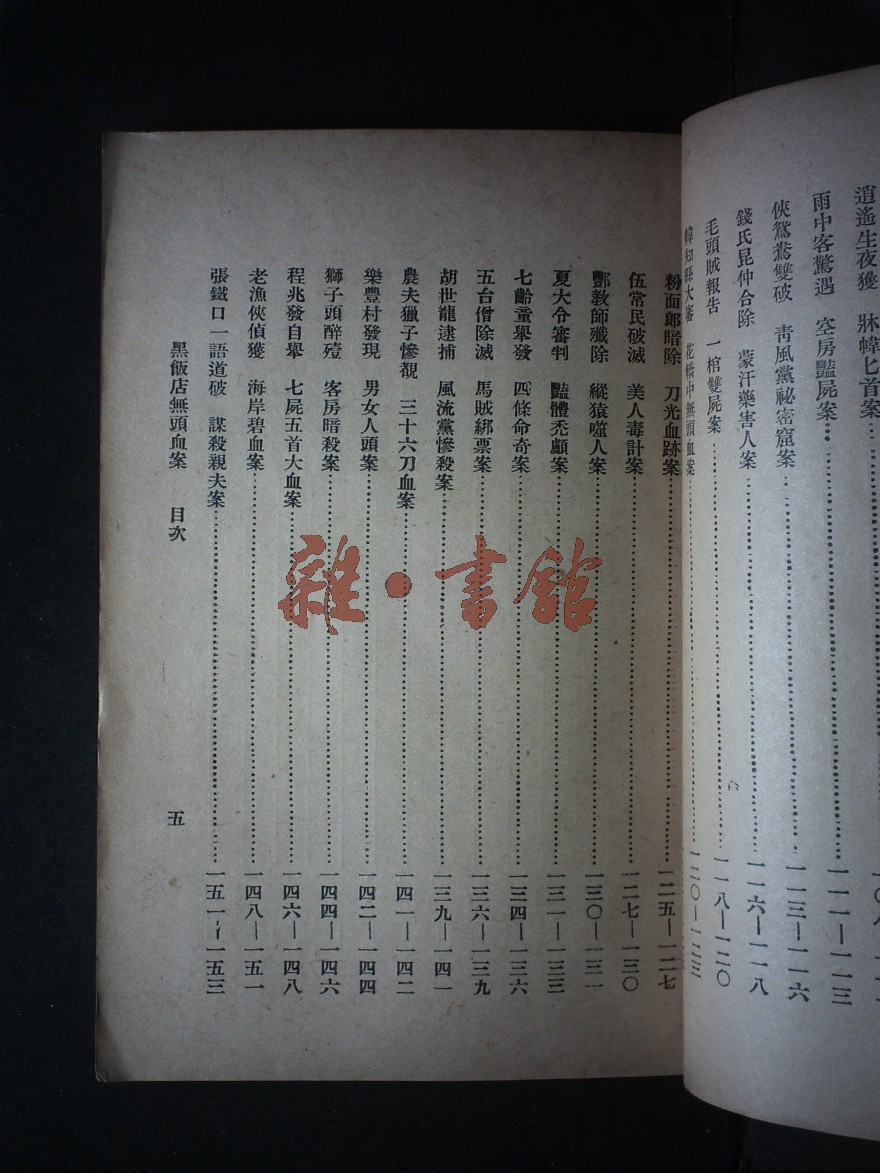 逍遙生夜獲 牀幃匕首案
雨中客驚遇 空房豔屍案 一一一—一一三
俠鴛鴦雙破 青風黨祕密窟案 一一三—一一六
錢氏昆仲合除 蒙汗藥害人案 一一六—一一八
毛頭賊報告 一棺雙屍案 一一八—一二〇
知縣大審 花轎中無頭血案 一二〇—一二三
粉面郎暗除 刀光血跡案 一二五—一二七
伍常民破滅 美人毒計案 一二七—一三〇
酆教師殲除 縱猿噬人案 一三〇—一三一
夏大令審判 豔體禿顱案 一三一—一三三
七齡童舉發 四條命奇案 一三四—一三六
五台僧除滅 馬賊綁票案 一三六—一三九
胡世龍逮捕 風流黨慘殺案 一三九—一四一
農夫獵子慘覩 三十六刀血案 一四一—一四二
樂豐村發現 男女人頭案 一四二—一四四
獅子頭醉殪 客房暗殺案 一四四—一四六
程兆發自舉 七屍五首大血案 一四六—一四八
老漁俠偵獲 海岸碧血案 一四八—一五一
張鐵口一語道破 謀殺親夫案 一五一—一五三
黑飯店無頭血案 目次 五
雜·書館